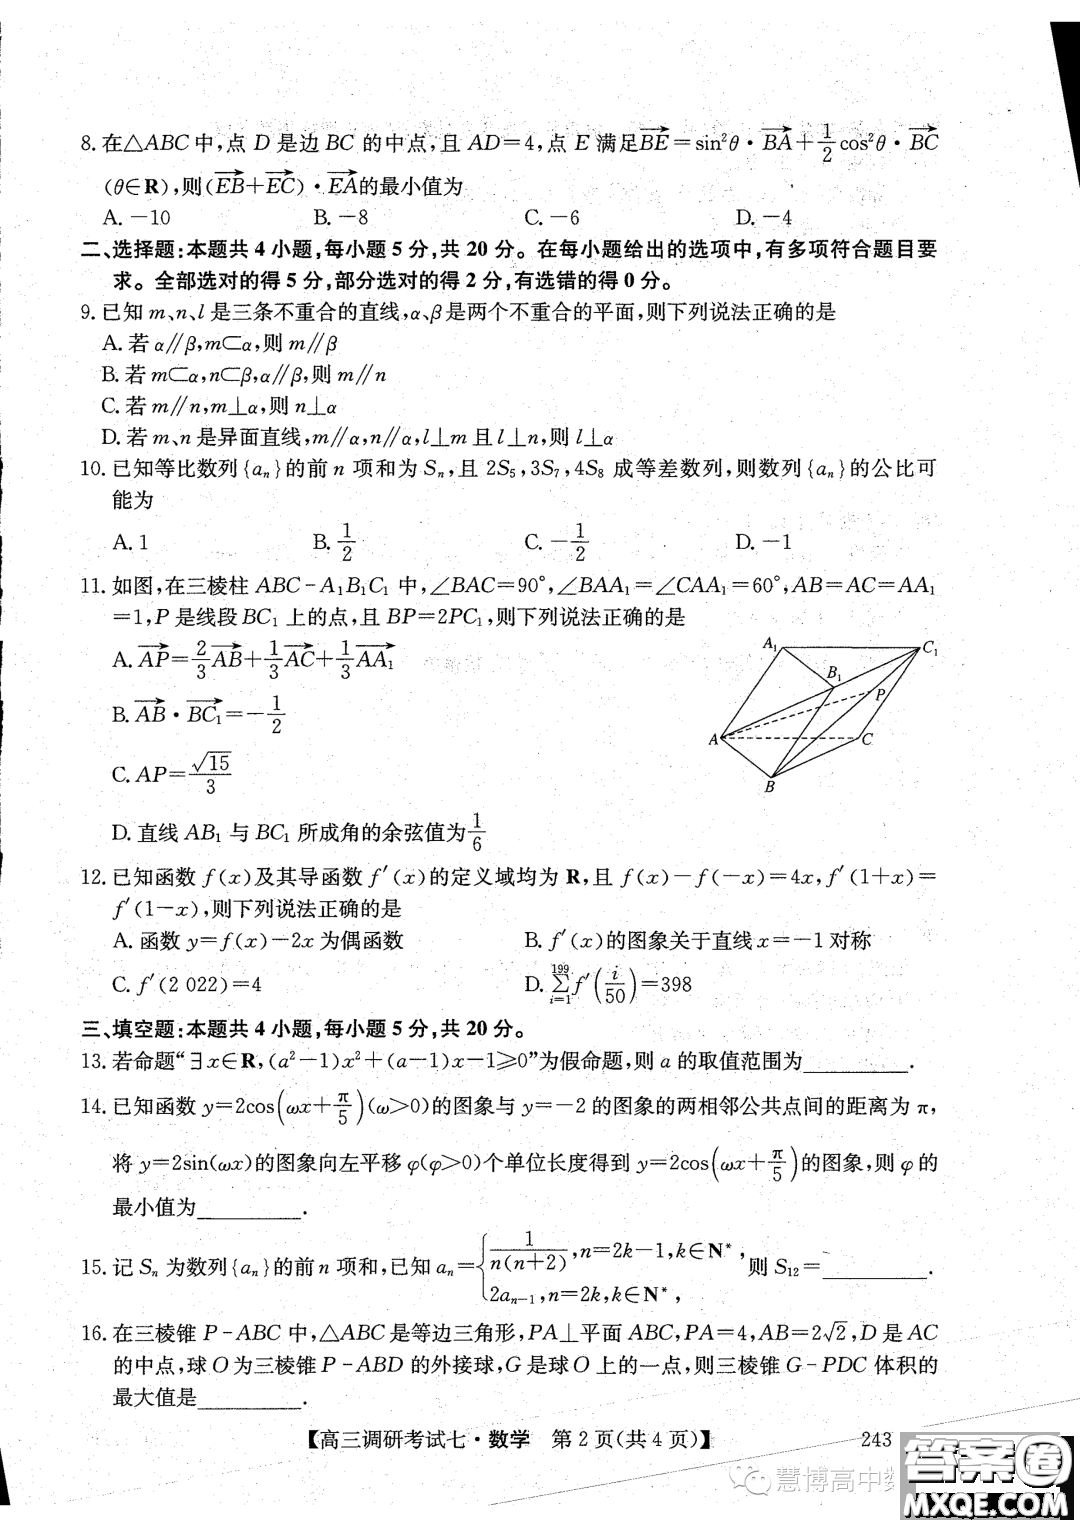 8. 在△ABC 中,点 D 是边 BC 的中点,且 AD=4,点 E 满足BE=sin²θ·BA+1/2cos²θ·BC
(θ∈R),则(EB+EC)·EA的最小值为
A. -10 B. -8 C. -6 D. -4
二、选择题:本题共 4 小题,每小题 5 分,共 20 分。在每小题给出的选项中,有多项符合题目要
求。全部选对的得 5 分,部分选对的得 2 分,有选错的得 0 分。
9. 已知 m、n、l 是三条不重合的直线,α、β是两个不重合的平面,则下列说法正确的是
A. 若 α∥β,m⊂α,则 m∥β
B. 若 m⊂α,n⊂β,α∥β,则 m∥n
C. 若 m∥n,m⊥α,则 n⊥α
D. 若 m、n 是异面直线,m∥α,n∥α,l⊥m 且 l⊥n,则 l⊥α
10. 已知等比数列{aₙ}的前 n 项和为 Sₙ,且 2S₅,3S₇,4S₈ 成等差数列,则数列{aₙ}的公比可
能为
A. 1 B. 1/2 C. -1/2 D. -1
11. 如图,在三棱柱 ABC-A₁B₁C₁ 中,∠BAC=90°,∠BAA₁=∠CAA₁=60°,AB=AC=AA₁
=1,P 是线段 BC₁ 上的点,且 BP=2PC₁,则下列说法正确的是
A. AP=2/3AB+1/3AC+1/3AA₁
B. AB·BC₁=-1/2
C. AP=√15/3
D. 直线 AB₁ 与 BC₁ 所成角的余弦值为1/6
A₁
C₁
B₁
P
A
C
B
12. 已知函数 f(x)及其导函数 f′(x)的定义域均为 R,且 f(x)-f(-x)=4x,f′(1+x)=
f′(1-x),则下列说法正确的是
A. 函数 y=f(x)-2x 为偶函数 B. f′(x)的图象关于直线 x=-1 对称
C. f′(2 022)=4 D. ∑_{i=1}^{199} f′(i/50)=398
三、填空题:本题共 4 小题,每小题 5 分,共 20 分。
13. 若命题“∃x∈R,(a²-1)x²+(a-1)x-1≥0”为假命题,则 a 的取值范围为________.
14. 已知函数 y=2cos(ωx+π/5)(ω>0)的图象与 y=-2 的图象的两相邻公共点间的距离为 π,
将 y=2sin(ωx)的图象向左平移 φ(φ>0)个单位长度得到 y=2cos(ωx+π/5)的图象,则 φ 的
最小值为________.
15. 记 Sₙ 为数列{aₙ}的前 n 项和,已知 aₙ={1/(n(n+2)),n=2k-1,k∈N*, 2aₙ₋₁,n=2k,k∈N*, 则 S₁₂=________.
16. 在三棱锥 P-ABC 中,△ABC 是等边三角形,PA⊥平面 ABC,PA=4,AB=2√2,D 是 AC
的中点,球 O 为三棱锥 P-ABD 的外接球,G 是球 O 上的一点,则三棱锥 G-PDC 体积的
最大值是________.
【高三调研考试七·数学 第 2 页(共 4 页)】 243
慧博高中数
答案圈
MXQE.COM